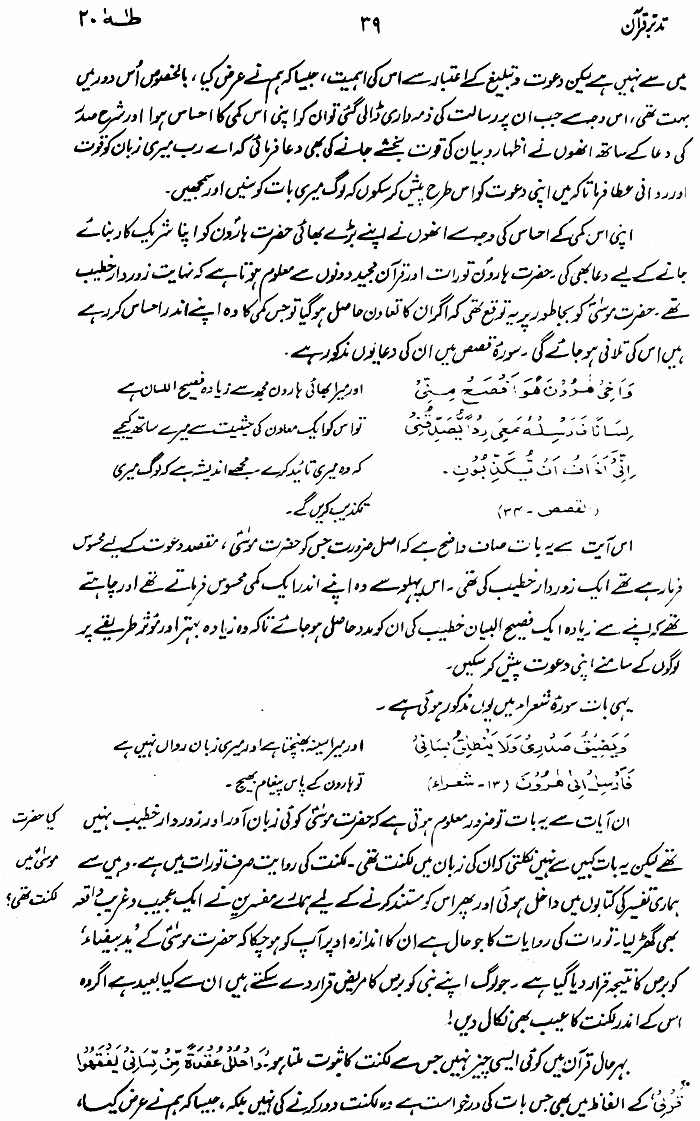 تدبر قرآن ۳۹ طٰهٰ ۲۰
میں سے نہیں ہے لیکن دعوت و تبلیغ کے اعتبار سے اس کی اہمیت، جیسا کہ ہم نے عرض کیا، بالخصوص اُس دور میں
بہت تھی، اس وجہ سے جب ان پر رسالت کی ذمہ داری ڈالی گئی تو ان کو اپنی اس کمی کا احساس ہوا اور شرحِ صدر
کی دعا کے ساتھ انھوں نے اظہار و بیان کی قوت بخشے جانے کی بھی دعا فرمائی کہ اے رب میری زبان کو قوت
اور روانی عطا فرما تاکہ میں اپنی دعوت کو اس طرح پیش کر سکوں کہ لوگ میری بات کو سنیں اور سمجھیں۔
اپنی اس کمی کے احساس کی وجہ سے انھوں نے اپنے بڑے بھائی حضرت ہارونؑ کو اپنا شریک کار بنائے
جانے کے لیے دعا بھی کی۔ حضرت ہارونؑ تورات اور قرآن مجید دونوں سے معلوم ہوتا ہے کہ نہایت زوردار خطیب
تھے۔ حضرت موسیٰؑ کو بجا طور پر یہ توقع تھی کہ اگر ان کا تعاون حاصل ہوگیا تو جس کمی کا وہ اپنے اندر احساس کر رہے
ہیں اس کی تلافی ہو جائے گی۔ سورۂ قصص میں ان کی دعا یوں مذکور ہے۔
وَاَخِیْ هٰرُوْنُ هُوَ اَفْصَحُ مِنِّیْ اور میرا بھائی ہارون مجھ سے زیادہ فصیح اللسان ہے
لِسَانًا فَاَرْسِلْهُ مَعِیَ رِدْاً یُّصَدِّقُنِیْ تو اس کو ایک معاون کی حیثیت سے میرے ساتھ کیجیے
اِنِّیْ اَخَافُ اَنْ یُّکَذِّبُوْنِ۔ کہ وہ میری تائید کرے۔ مجھے اندیشہ ہے کہ لوگ میری
(القصص - ۳۴) تکذیب کریں گے۔
اس آیت سے یہ بات صاف واضح ہے کہ اصل ضرورت جس کو حضرت موسیٰؑ، مقصدِ دعوت کے لیے محسوس
فرما رہے تھے ایک زوردار خطیب کی تھی۔ اس پہلو سے وہ اپنے اندر ایک کمی محسوس فرماتے تھے اور چاہتے
تھے کہ اپنے سے زیادہ ایک فصیح البیان خطیب کی ان کو مدد حاصل ہو جائے تاکہ وہ زیادہ بہتر اور مؤثر طریقے پر
لوگوں کے سامنے اپنی دعوت پیش کر سکیں۔
یہی بات سورۂ شعراء میں یوں مذکور ہوئی ہے۔
وَیَضِیْقُ صَدْرِیْ وَلَا یَنْطَلِقُ لِسَانِیْ اور میرا سینہ بھنچتا ہے اور میری زبان رواں نہیں ہے
فَاَرْسِلْ اِلٰی هٰرُوْنَ (۱۳ - شعراء) تو ہارون کے پاس پیغام بھیج۔
ان آیات سے یہ بات تو ضرور معلوم ہوتی ہے کہ حضرت موسیٰؑ کوئی زبان آور اور زوردار خطیب نہیں
تھے لیکن یہ بات کہیں سے نہیں نکلتی کہ ان کی زبان میں لکنت تھی۔ لکنت کی روایت صرف تورات میں ہے۔ وہیں سے
ہماری تفسیر کی کتابوں میں داخل ہوئی اور پھر اس کو مستند کرنے کے لیے ہمارے مفسرین نے ایک عجیب و غریب واقعہ
بھی گھڑ لیا۔ تورات کی روایات کا جو حال ہے ان کا اندازہ اوپر آپ کو ہو چکا کہ حضرت موسیٰؑ کے ’یدِ بیضاء‘
کو برص کا نتیجہ قرار دیا گیا ہے۔ جو لوگ اپنے نبی کو برص کا مریض قرار دے سکتے ہیں ان سے کیا بعید ہے اگر وہ
اس کے اندر لکنت کا عیب بھی نکال دیں!
کیا حضرت
موسیٰؑ میں
لکنت تھی؟
بہرحال قرآن میں کوئی ایسی چیز نہیں جس سے لکنت کا ثبوت ملتا ہو۔ ’وَاحْلُلْ عُقْدَةً مِّنْ لِّسَانِیْ یَفْقَهُوْا
قَوْلِیْ‘ کے الفاظ میں بھی جس بات کی درخواست ہے وہ لکنت دور کرنے کی نہیں بلکہ، جیسا کہ ہم نے عرض کیا،